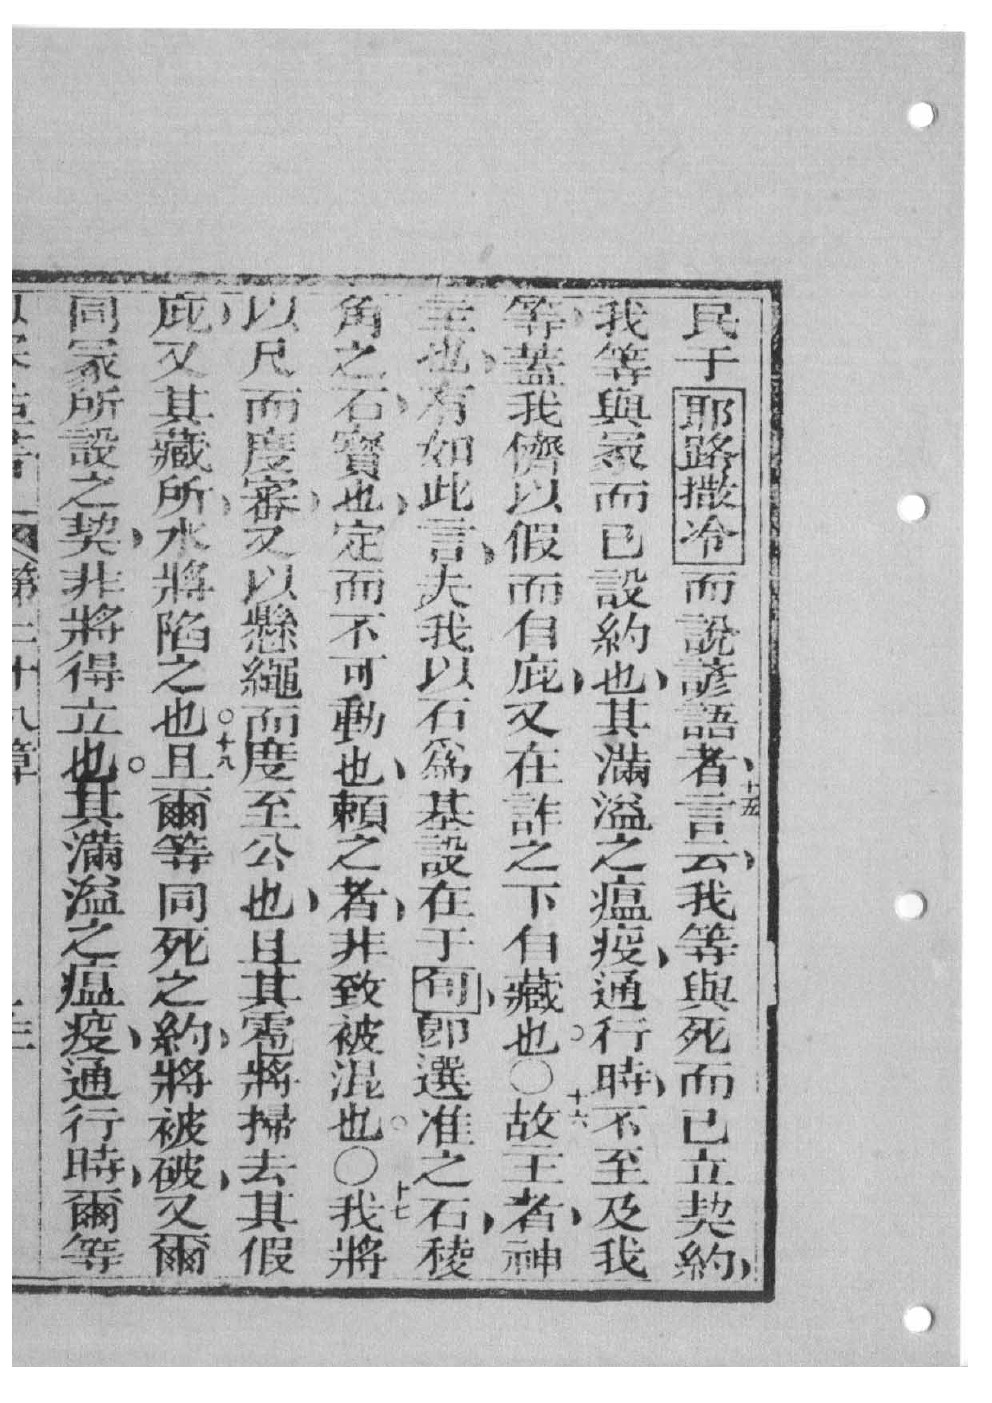 民于耶路撒冷而說諺語者十五言云我等與死而已立契約
我等與冢而已設約也其滿溢之瘟疫通行時不至及我
等蓋我儕以假而自庇又在詐之下自藏也○十六故主者神
主也有如此言夫我以石為基設在于旬卽選准之石稜
角之石寶也定而不可動也賴之者非致被混也○十七我將
以尺而度審又以懸繩而度至公也且其雹將掃去其假
庇又其藏所水將陷之也○十八且爾等同死之約將被破又爾
同冢所設之契非將得立也○其滿溢之瘟疫通行時爾等
第二十八章